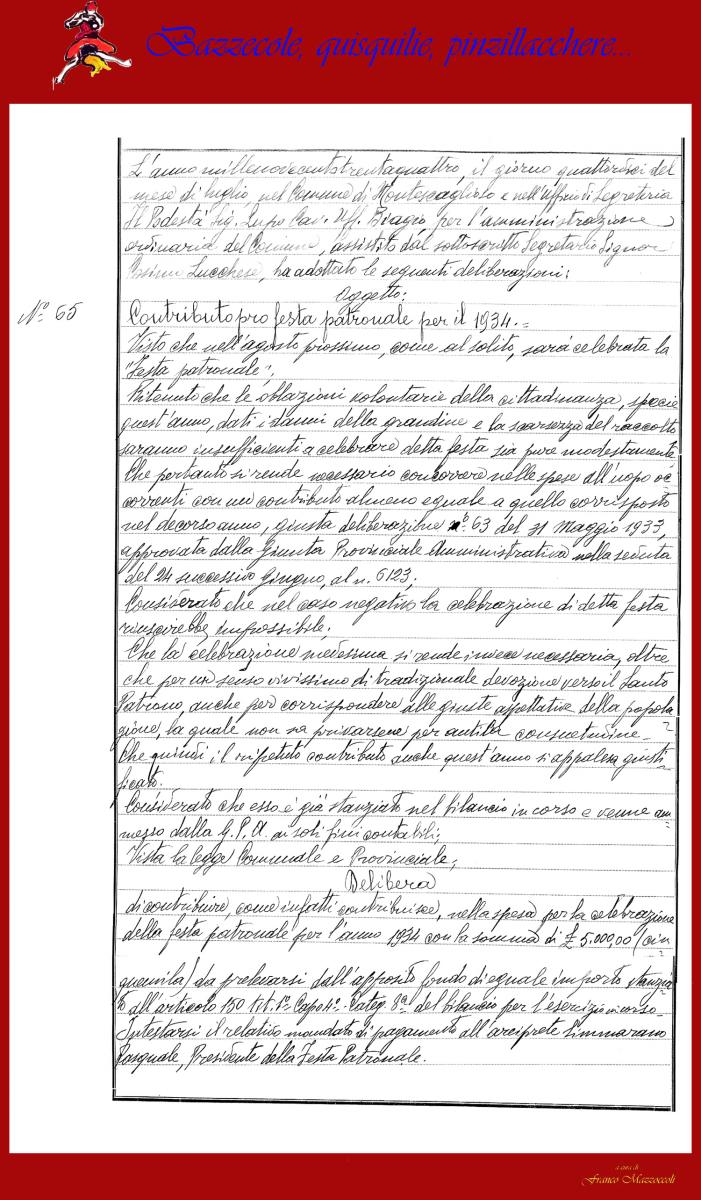 Bazzecole, quisquilie, pinzillacchere...
L'anno millenovecentotrentaquattro, il giorno quattordici del
mese di luglio, nel Comune di Montescaglioso e nell'Ufficio di Segreteria
Il Podestà Sig. Lupo Cav. Uff. Biagio, per l'amministrazione
ordinaria del Comune, assistito dal sottoscritto Segretario Signor
Cosimo Lucchese, ha adottato le seguenti deliberazioni:
Oggetto:
N° 65
Contributo pro festa patronale per il 1934.=
Visto che nell'agosto prossimo, come al solito, sarà celebrata la
"Festa patronale";
Ritenuto che le oblazioni volontarie della cittadinanza, specie
quest'anno, dati i danni della grandine e la scarsezza del raccolto
saranno insufficienti a celebrare detta festa sia pure modestamente,
Che pertanto si rende necessario concorrere nelle spese all'uopo oc=
correnti con un contributo almeno eguale a quello corrisposto
nel decorso anno, giusta deliberazione n° 63 del 31 Maggio 1933,
approvata dalla Giunta Provinciale Amministrativa nella seduta
del 24 successivo Giugno, al n. 6123;
Considerato che nel caso negativo la celebrazione di detta festa
riuscirebbe impossibile;
Che la celebrazione medesima si rende invece necessaria, oltre
che per un senso vivissimo di tradizionale devozione verso il Santo
Patrono, anche per corrispondere alle giuste aspettative della popola
zione, la quale non sa privarsene per antica consuetudine.=
Che quindi il ripetuto contributo anche quest'anno si appalesa giusti=
ficato.
Considerato che esso è già stanziato nel bilancio in corso e venne am=
messo dalla G.P.A. ai soli fini contabili;
Vista la legge Comunale e Provinciale;
Delibera
di contribuire, come infatti contribuisce, nella spesa per la celebrazione
della festa patronale per l'anno 1934 con la somma di £ 5.000,00 (cin
quemila) da prelevarsi dall'apposito fondo di eguale importo stanzia
to all'articolo 150 tit. 1° Capo 4° - Categ. 9a del bilancio per l'esercizio in corso
Intestarsi il relativo mandato di pagamento all'arciprete Simmarano
Pasquale, Presidente della Festa Patronale.
a cura di
Franco Mazzoccoli